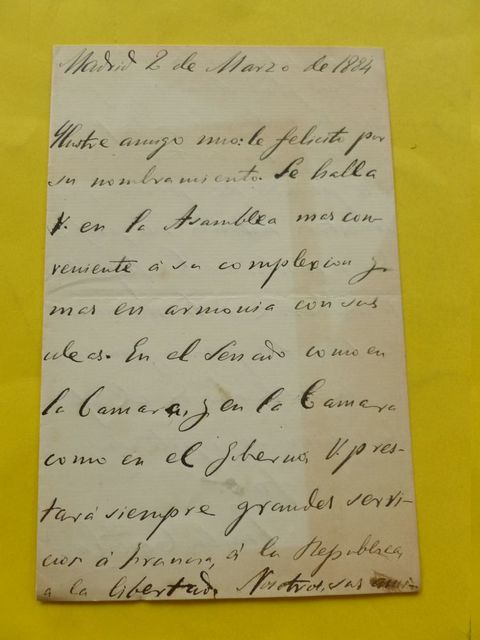 Madrid 2 de Marzo de 1884
Ilustre amigo mio: le felicito por
su nombramiento. Se halla
V. en la Asamblea mas con-
veniente á su complexion y
mas en armonia con sus
ideas. En el Senado como en
la Camara, y en la Camara
como en el Gobierno, V. pres-
tará siempre grandes servi-
cios á Francia, á la Republica,
a la libertad. Nosotros, sus ami-